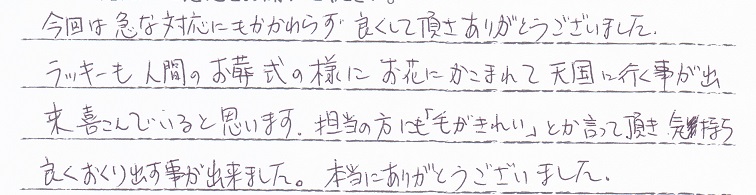 今回は急な対応にもかかわらず良くして頂きありがとうございました.
ラッキーも人間のお葬式の様にお花にかこまれて天国に行く事が出
来喜こんでいると思います. 担当の方にも「毛がきれい」とか言って頂き気持ち
良くおくり出す事が出来ました。本当にありがとうございました.